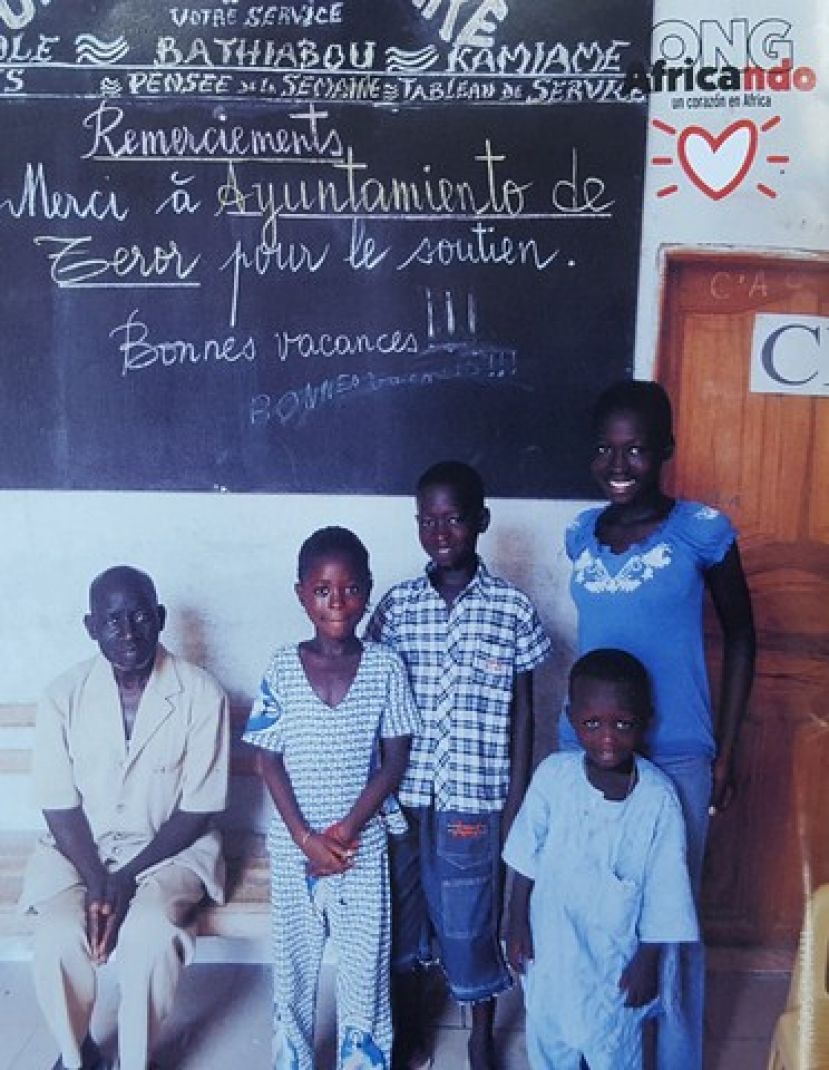 VOTRE SERVICE
OLE BATHIABOU KAMIAME
S PENSEE DE LA SEMAINE TABLEAU DE SERVICE
ONG
Africando
un corazón en Africa
Remerciements
Merci à Ayuntamiento de
Teror pour le soutien.
Bonnes vacances !!!
BONNES vacances !!!
C'A
C